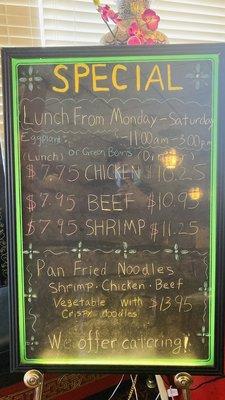 SPECIAL
Lunch From Monday - Saturday
Eggplant -11:00am-3:00pm
(Lunch) or Green Beans (Dinner)
$7.75 CHICKEN $10.25
$7.95 BEEF $10.95
$7.95 SHRIMP $11.25
Pan Fried Noodles
Shrimp · Chicken · Beef
Vegetable with $13.95
Crispy Noodles
We offer catering!